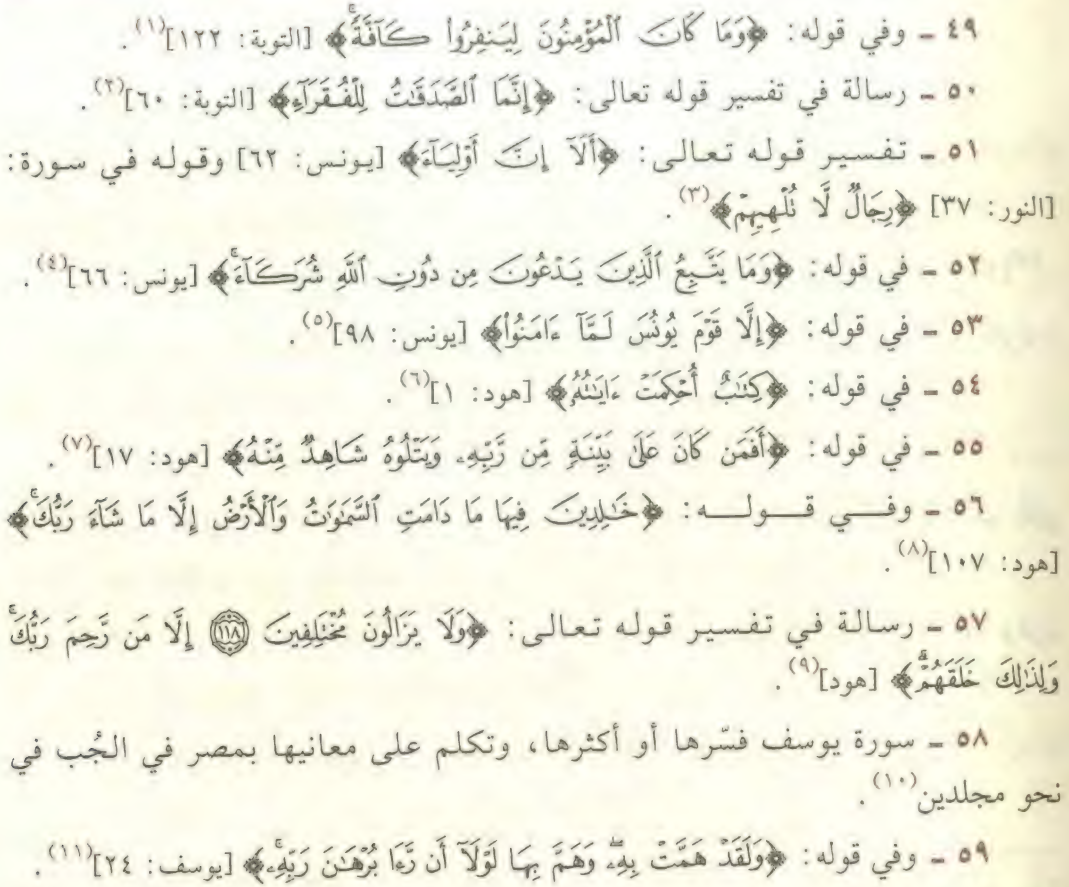 ٤٩ ـ وفي قوله: ﴿وَمَا كَانَ ٱلْمُؤْمِنُونَ لِيَنفِرُوا۟ كَآفَّةًۚ﴾ [التوبة: ١٢٢]⁽١⁾.
٥٠ ـ رسالة في تفسير قوله تعالى: ﴿إِنَّمَا ٱلصَّدَقَٰتُ لِلْفُقَرَآءِ﴾ [التوبة: ٦٠]⁽٢⁾.
٥١ ـ تفسير قوله تعالى: ﴿أَلَآ إِنَّ أَوْلِيَآءَ﴾ [يونس: ٦٢] وقوله في سورة:
[النور: ٣٧] ﴿رِجَالٌ لَّا تُلْهِيهِمْ﴾⁽٣⁾.
٥٢ ـ في قوله: ﴿وَمَا يَتَّبِعُ ٱلَّذِينَ يَدْعُونَ مِن دُونِ ٱللَّهِ شُرَكَآءَۚ﴾ [يونس: ٦٦]⁽٤⁾.
٥٣ ـ في قوله: ﴿إِلَّا قَوْمَ يُونُسَ لَمَّآ ءَامَنُوا۟﴾ [يونس: ٩٨]⁽٥⁾.
٥٤ ـ في قوله: ﴿كِتَٰبٌ أُحْكِمَتْ ءَايَٰتُهُۥ﴾ [هود: ١]⁽٦⁾.
٥٥ ـ في قوله: ﴿أَفَمَن كَانَ عَلَىٰ بَيِّنَةٍ مِّن رَّبِّهِۦ وَيَتْلُوهُ شَاهِدٌ مِّنْهُ﴾ [هود: ١٧]⁽٧⁾.
٥٦ ـ وفي قوله: ﴿خَٰلِدِينَ فِيهَا مَا دَامَتِ ٱلسَّمَٰوَٰتُ وَٱلْأَرْضُ إِلَّا مَا شَآءَ رَبُّكَۚ﴾
[هود: ١٠٧]⁽٨⁾.
٥٧ ـ رسالة في تفسير قوله تعالى: ﴿وَلَا يَزَالُونَ مُخْتَلِفِينَ ۝١١٨ إِلَّا مَن رَّحِمَ رَبُّكَۚ
وَلِذَٰلِكَ خَلَقَهُمْۗ﴾ [هود]⁽٩⁾.
٥٨ ـ سورة يوسف فسّرها أو أكثرها، وتكلم على معانيها بمصر في الجُب في
نحو مجلدين⁽١٠⁾.
٥٩ ـ وفي قوله: ﴿وَلَقَدْ هَمَّتْ بِهِۦۖ وَهَمَّ بِهَا لَوْلَآ أَن رَّءَا بُرْهَٰنَ رَبِّهِۦۚ﴾ [يوسف: ٢٤]⁽١١⁾.